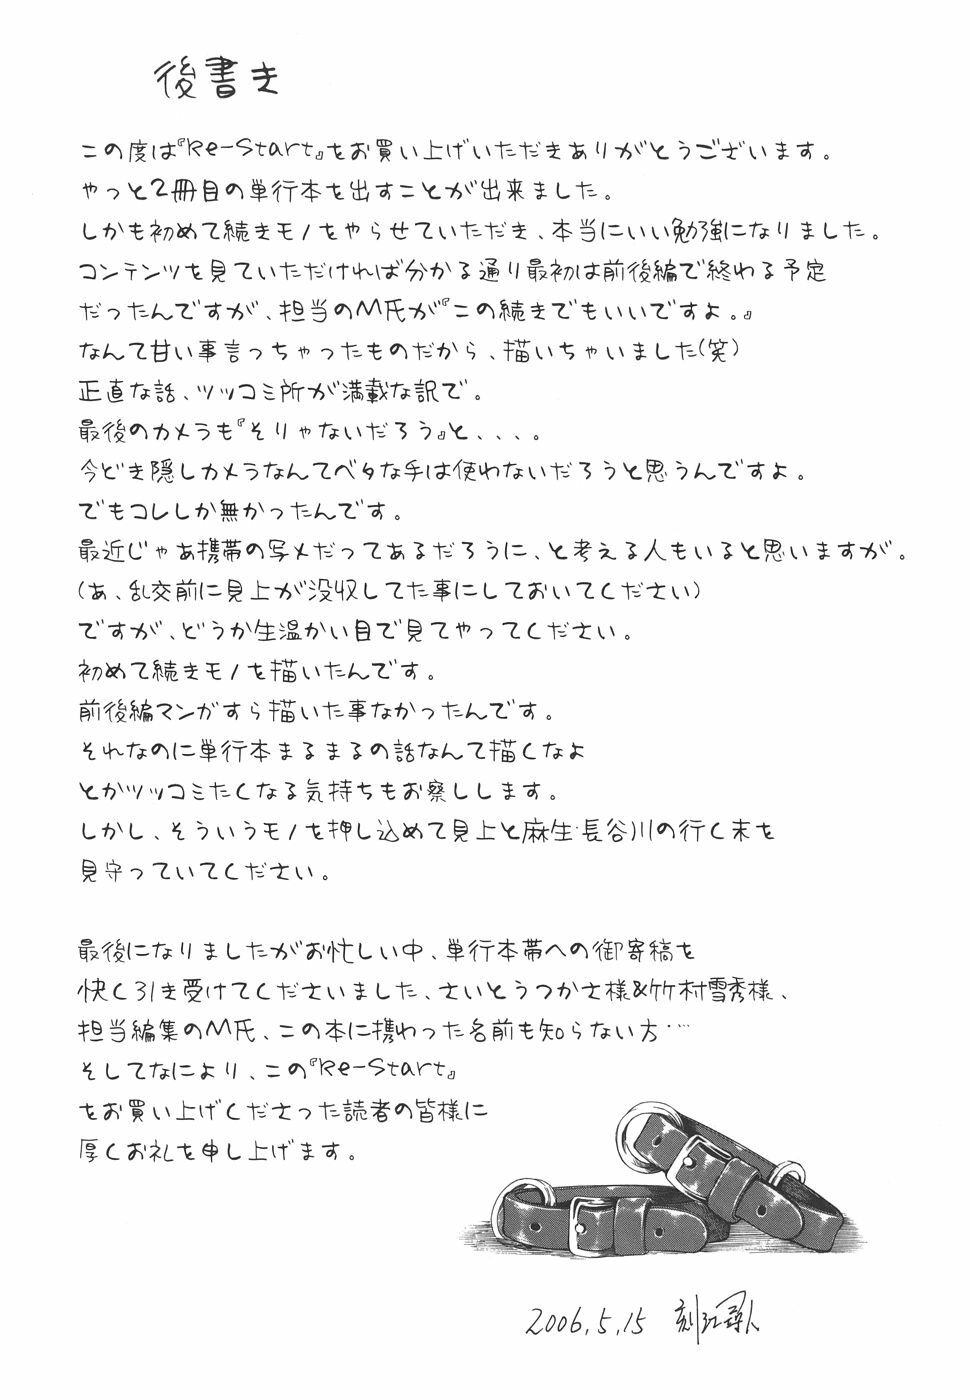 後書き
この度は『Re-Start』をお買い上げいただきありがとうございます。
やっと2冊目の単行本を出すことが出来ました。
しかも初めて続きモノをやらせていただき、本当にいい勉強になりました。
コンテンツを見ていただければ分かる通り最初は前後編で終わる予定
だったんですが、担当のM氏が『この続きでもいいですよ。』
なんて甘い事言っちゃったものだから、描いちゃいました(笑)
正直な話、ツッコミ所が満載な訳で。
最後のカメラも『そりゃないだろう』と、、、。
今どき隠しカメラなんてベタな手は使わないだろうと思うんですよ。
でもコレしか無かったんです。
最近じゃあ携帯の写メだってあるだろうに、と考える人もいると思いますが。
(あ、乱交前に見上が没収してた事にしておいてください)
ですが、どうか生温かい目で見てやってください。
初めて続きモノを描いたんです。
前後編マンガすら描いた事なかったんです。
それなのに単行本まるまるの話なんて描くなよ
とかツッコミたくなる気持ちもお察しします。
しかし、そういうモノを押し込めて見上と麻生・長谷川の行く末を
見守っていてください。
最後になりましたがお忙しい中、単行本帯への御寄稿を
快く引き受けてくださいました、さいとうつかさ様&竹村雪秀様、
担当編集のM氏、この本に携わった名前も知らない方…
そしてなにより、この『Re-Start』
をお買い上げくださった読者の皆様に
厚くお礼を申し上げます。
2006.5.15 刻江尋人